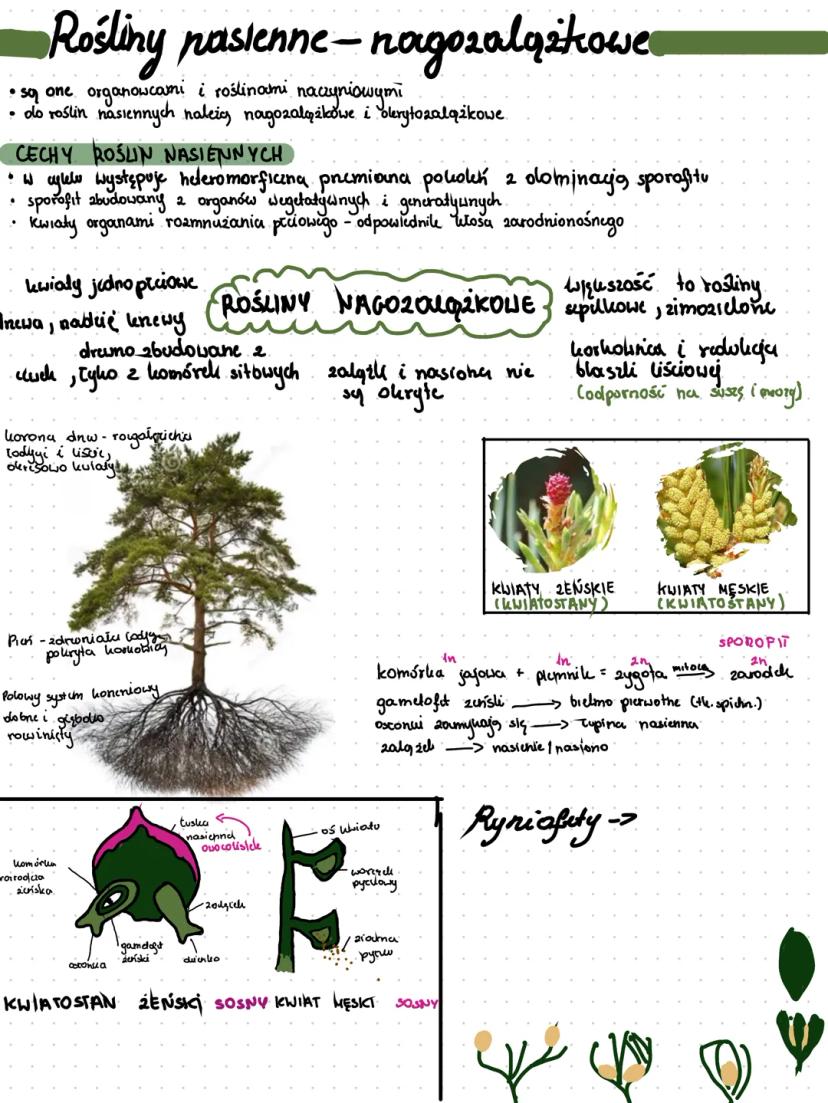 Rośliny nasienne – nagozalążkowe
• są one organowcami i roślinami naczyniowymi
• do roślin nasiennych należą nagozalążkowe i okrytozalążkowe
CECHY ROŚLIN NASIENNYCH
• w cyklu występuje heteromorficzna przemiana pokoleń z dominacją sporofitu
• sporofit zbudowany z organów wegetatywnych i generatywnych
• kwiaty organami rozmnażania płciowego – odpowiednik kłosa zarodnionośnego
kwiaty jednopłciowe
drzewa, rzadziej krzewy
drewno zbudowane z
cewek, łyko z komórek sitowych
ROŚLINY NAGOZALĄŻKOWE
zalążki i nasiona nie
są okryte
większość to rośliny
szpilkowe, zimozielone
korkowica i redukcja
blaszki liściowej
(odporność na suszę i mrozy)
korona drzew - rozgałęzienia
łodygi i liście,
okresowo kwiaty
Pień - zdrewniała łodyga
pokryta korkowicą
Palowy system korzeniowy
dobrze i głęboko
rozwinięty
KWIATY ŻEŃSKIE
(KWIATOSTANY)
KWIATY MĘSKIE
(KWIATOSTANY)
SPOROFIT
1n 1n 2n 2n
komórka jajowa + plemnik = zygota mitoza zarodek
gametofit żeński → bielmo pierwotne (tk. spichrz.)
osłonki zamykają się → łupina nasienna
zalążek → nasienie / nasiono
łuska
nasienna
owocolistek
komórka
macierzysta
żeńska
zalążek
osłonka
gametofit
żeński
okienko
KWIATOSTAN ŻEŃSKI SOSNY
oś kwiatu
woreczek
pyłkowy
ziarna
pyłku
KWIAT MĘSKI SOSNY
Ryniofity →